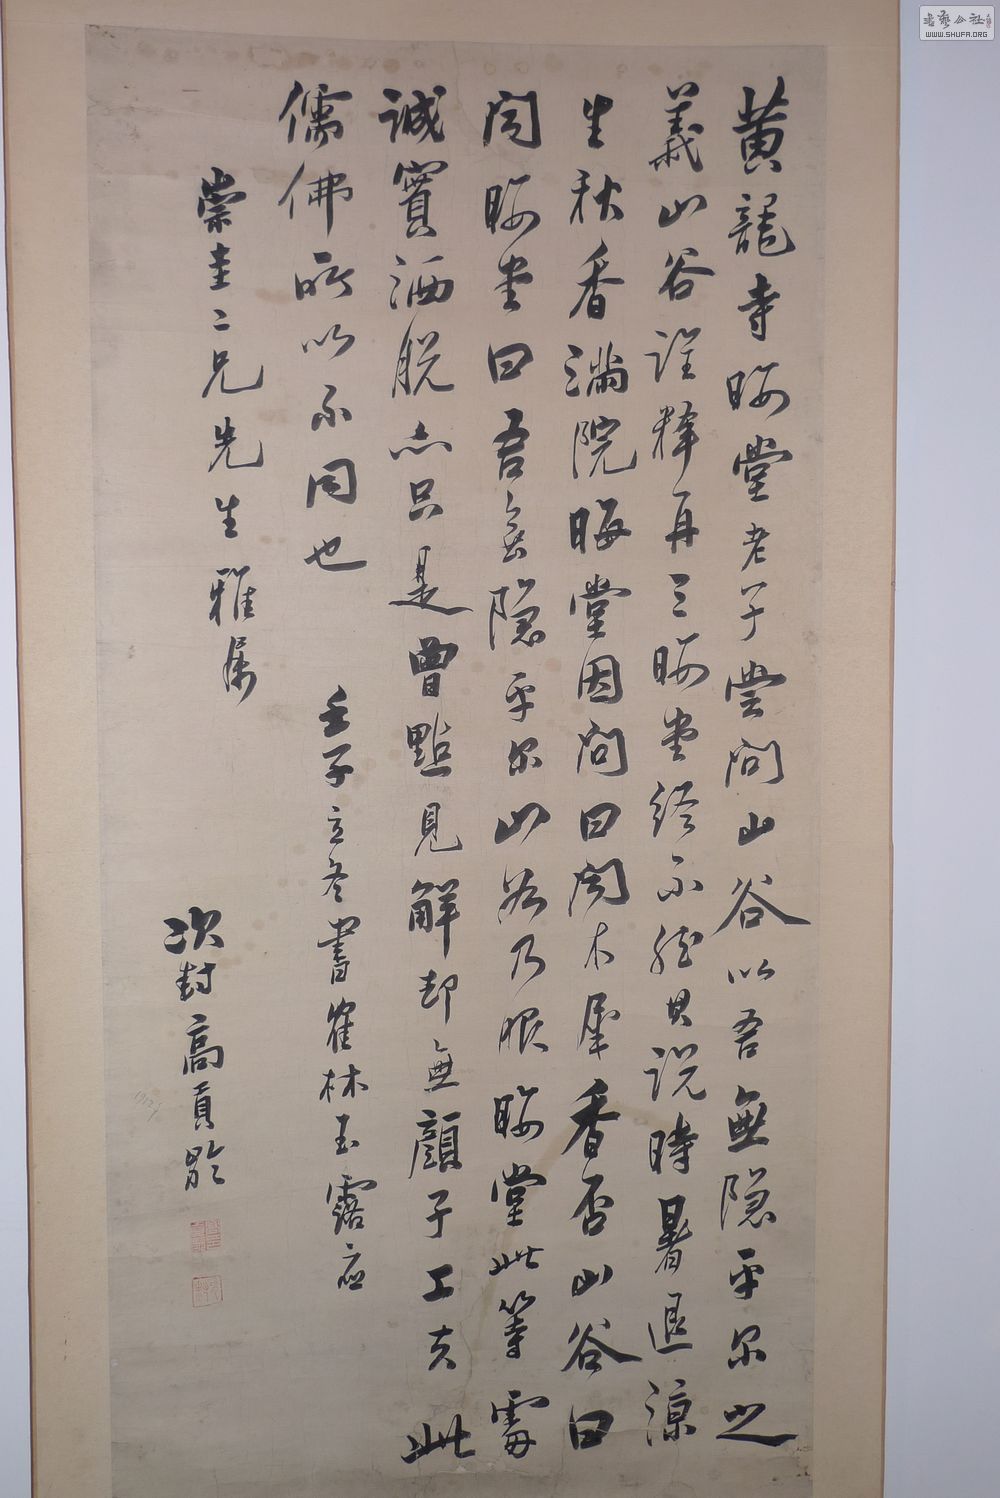 黃龍寺晦堂老子嘗問山谷以吾無隱乎尔之
義山谷詮釋再三晦堂終不然其說時暑退涼
生秋香滿院晦堂因問曰聞木犀香否山谷曰
聞晦堂曰吾無隱乎尔山谷乃服晦堂此等處
誠實洒脱亦只是曾點見解却無顏子工夫此
儒佛所以不同也
壬子立冬書崔林玉露應
崇圭二兄先生雅属
次封高貢齡
书艺公社
WWW.SHUFA.ORG